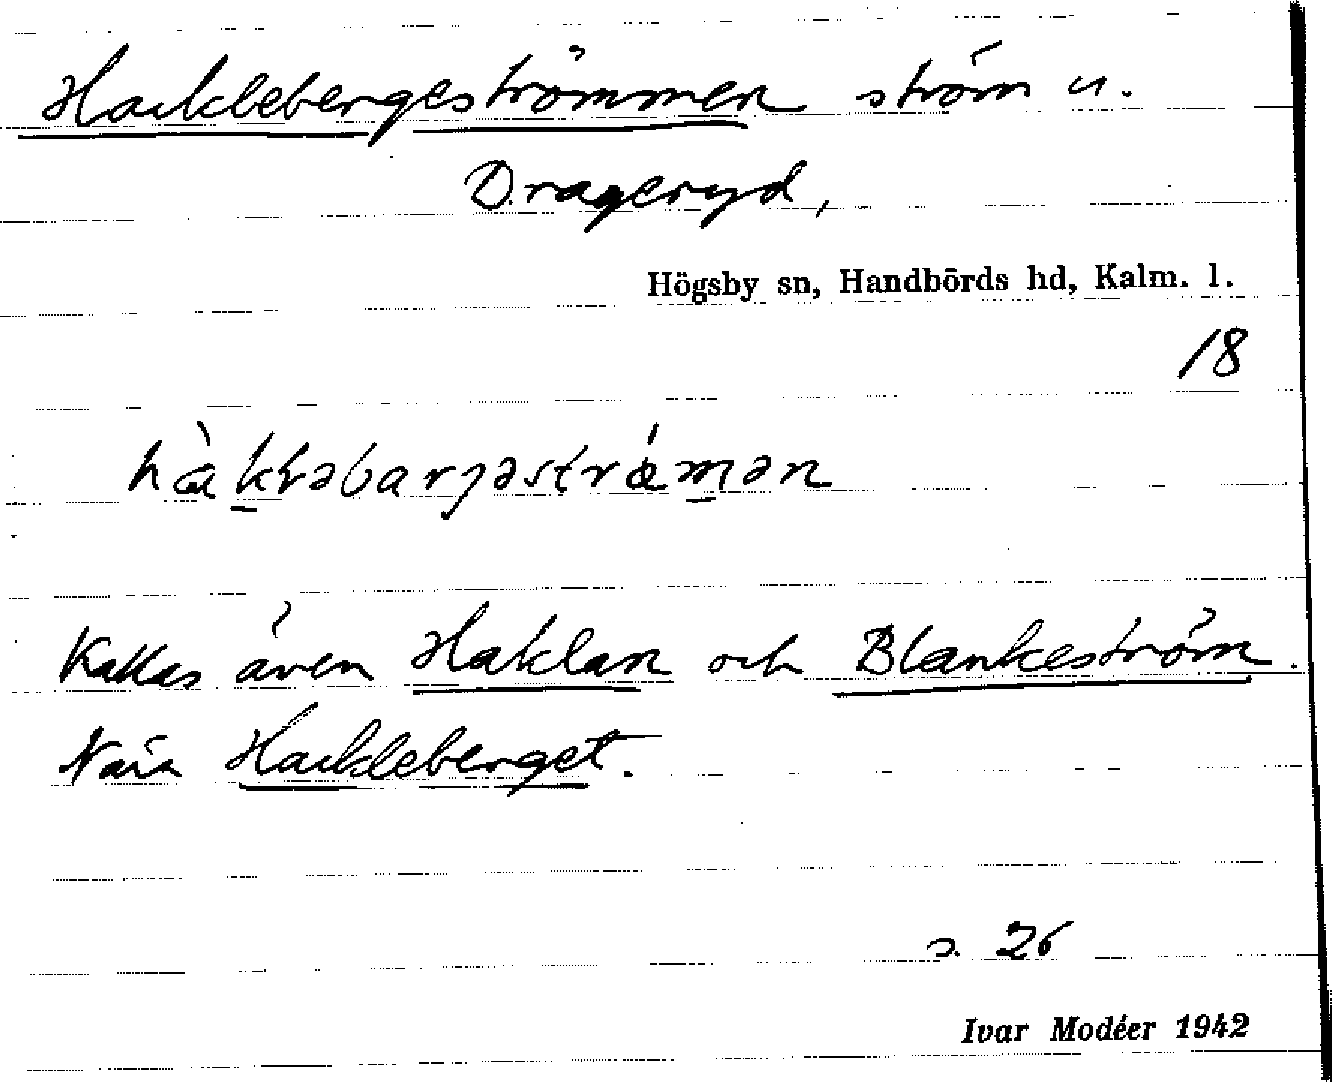 Hacklebergeströmmen ström u.
Drageryd,
Högsby sn, Handbörds hd, Kalm. l.
18
Kallas även Haklan och Blankeström.
Nära Hackleberget.
s. 26
Ivar Modéer 1942